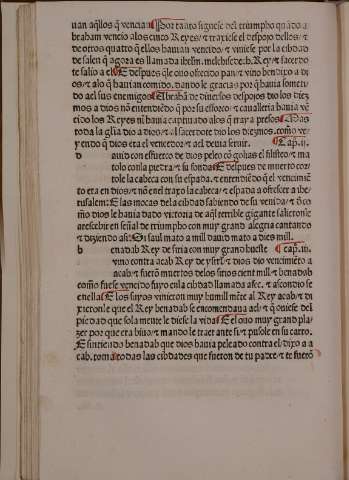 uan aq̃llos q̃ vencian Por tanto siguese del triumpho quãdo a
braham vencio alos cinco Reyes/⁊ trayéle el despojo dellos/⁊
de otros quatro q̃ ellos hauian vencido/⁊ viniese por la cibdad
de salen q̃ agora es llamada ibrlm. melchisedech. Rey ⁊ sacerdo
te salio a el E despues q̃le ouo ofrecido pan ⁊ vino bendixo a di
os/⁊ alo q̃ hauian comido. dando le gracias por q̃ hauia someti
do ael sus enemigos Abrahã de diuersos despojos dio los diez
mos a dios nõ entendiẽdo q̃ por su esforço ⁊ cauallería hauia vẽ
cido los Reyes ni hauia captiuado alos q̃ traya presos Mas
toda la gl̃ia dio a dios/⁊ al sacerdote dio los diezmos. como ve
yendo q̃ dios era el vencedor ⁊ ael deuia seruir. Cap. ii.
d auid con esfuerço de dios peleo cõ golias el filisteo ⁊ ma
tolo con la piedra ⁊ su fonda E despues de muerto cor
tole la cabeça con su espada. ⁊ entendiẽdo q̃ el vencimiẽ
to era en dios/⁊ nõ en el traxo la cabeça ⁊ espada a ofrescer a ihe-
rusalem: E las moças de la cibdad sabiendo de su venida/⁊ õ co
mo dios le hauia dado victoria de aq̃l terrible gigante salierõ le
a rescebir en señal de triumpho con muy grand alegria cantando
⁊ diziendo assi: Si saul mato a mill dauid mato a dies mill.
b enadab Rey de siria con muy grand hueste Cap. iii.
vino contra acab Rey de ysrl̃ ⁊ dios dio vencimiẽto a
acab/⁊ fuerõ muertos delos sirios cient mill ⁊ benadab
como fuese vencido fuyo en la cibdad llamada afec. ⁊ ascondio se
en ella E los suyos vinieron muy humill mẽte al Rey acab/⁊ di
xieronle que el Rey benadab se encomendaua ael/⁊ q̃ ouiese del
piedad que sola mente le diese la vida E el ouo muy grand pla-
zer por que era biuo/⁊ mando le traer ante si/⁊ pusole en su carro.
E sintiendo benadab que dios hauia peleado contra el/dixo a a
cab. toma todas las cibdades que fueron de tu padre/⁊ te fuerõ